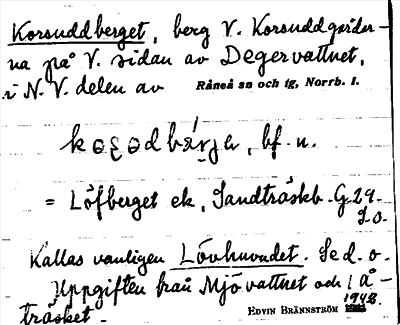 Korsuddberget, berg V. Korsuddgårdar-
na på V. sidan av Degervattnet,
i N.V. delen av Råneå sn och tg, Norrb. l.
bf. n.
= Löfberget ek, Sandträskb. G. 29.
S.o.
Kallas vanligen Lövhuvudet. Se d. o.
Uppgiften från Mjövattnet och 1 å-
träsket.
EDVIN BRÄNNSTRÖM 1942.